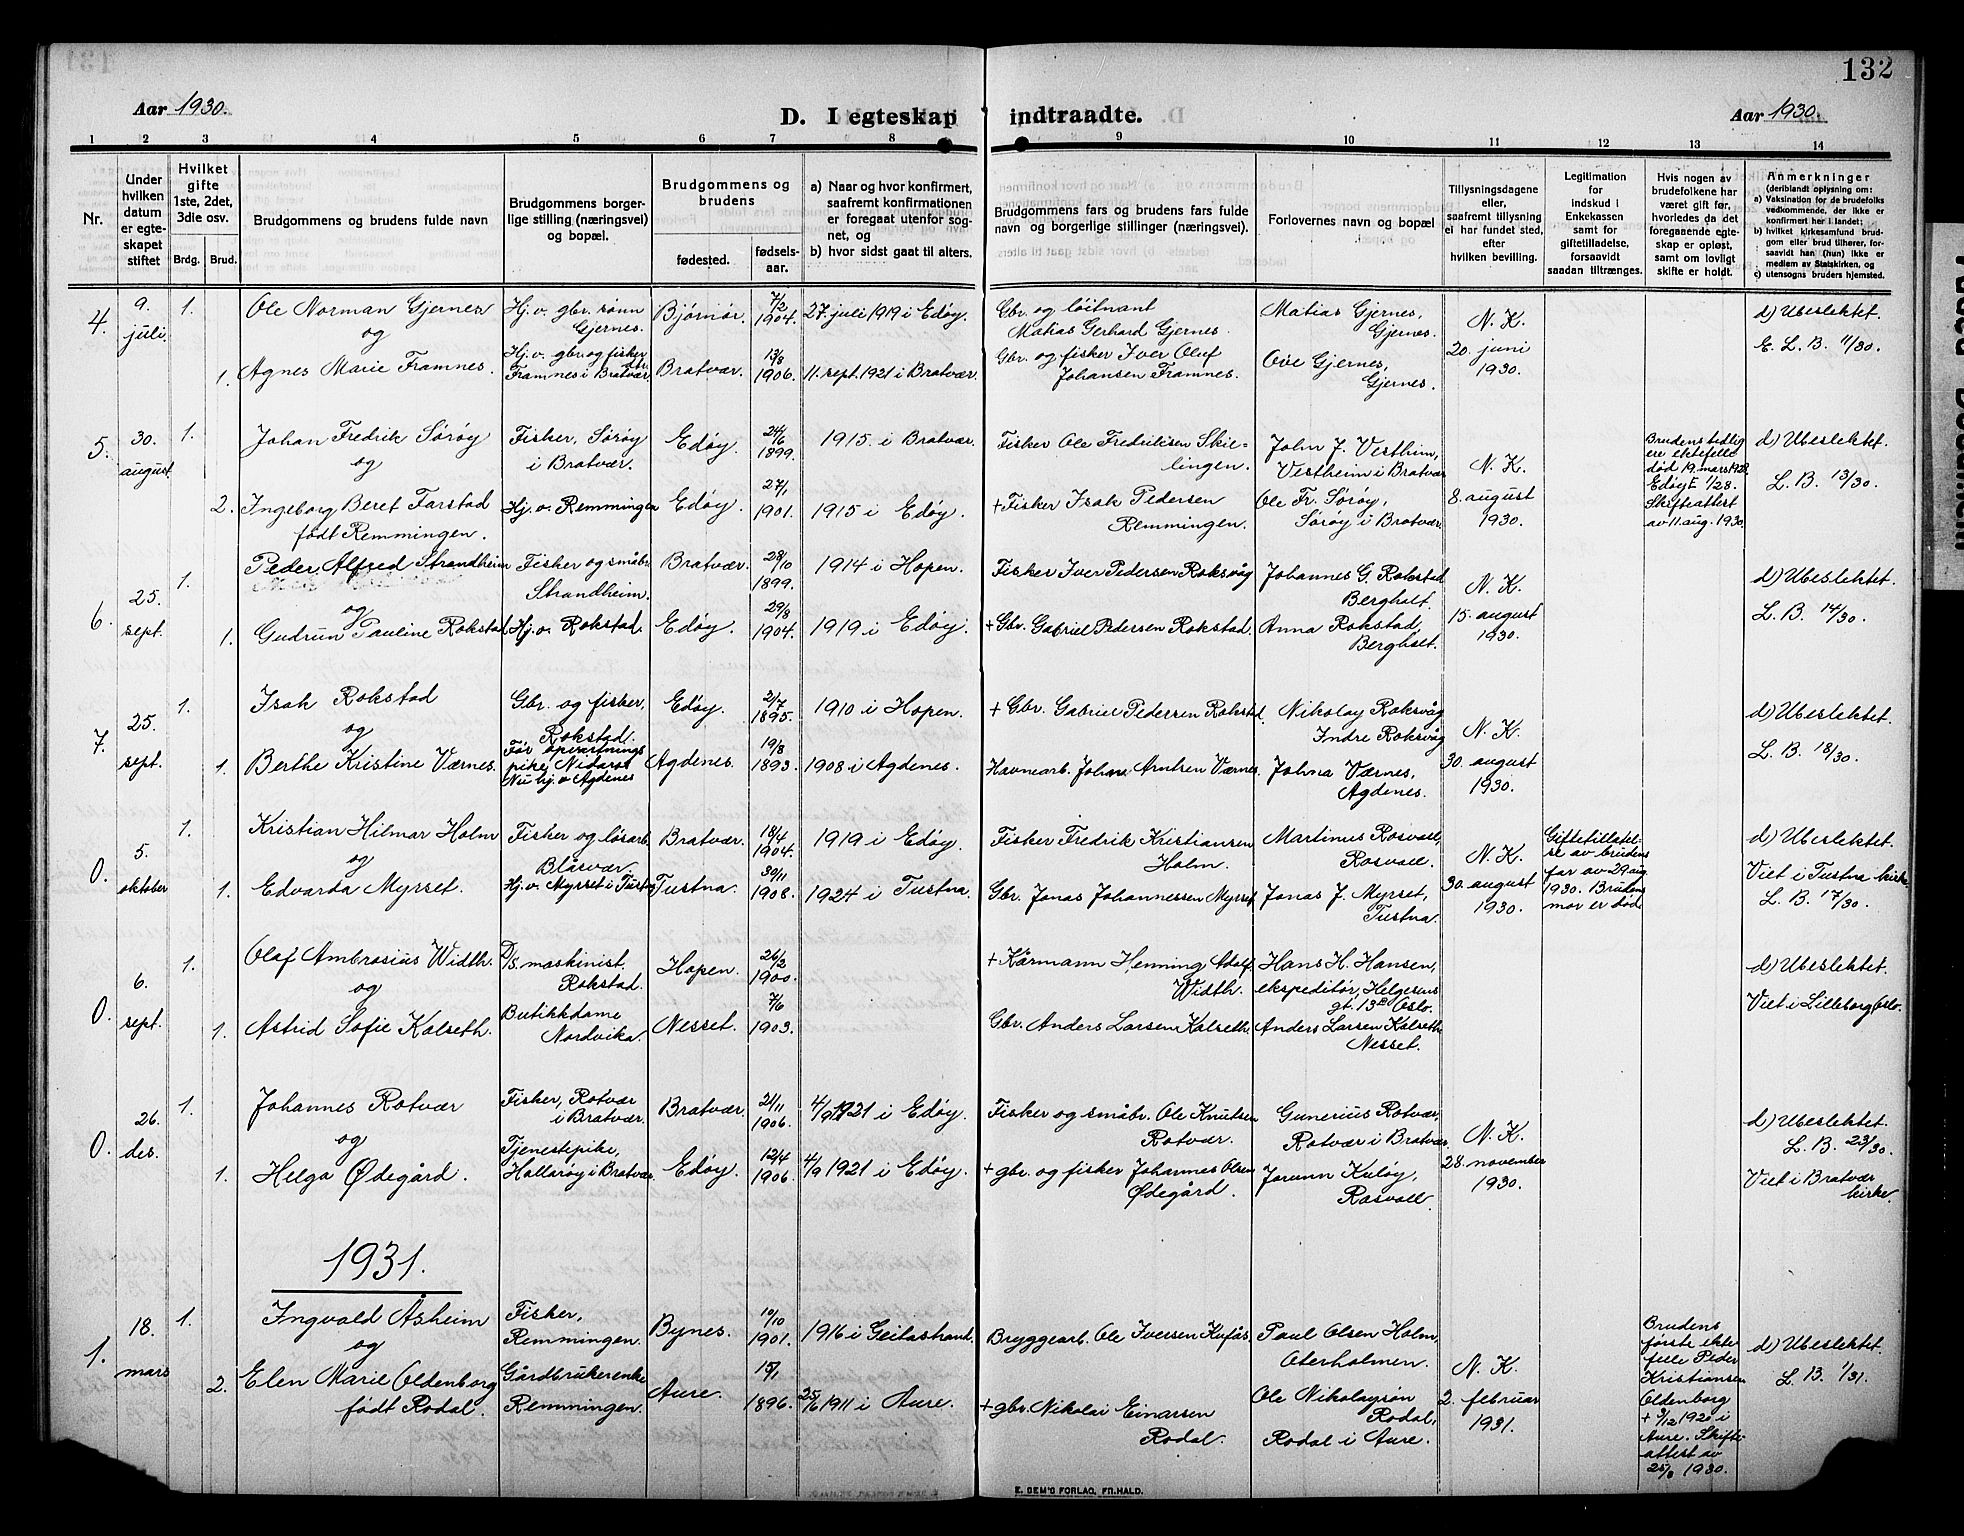 132
Aar 1930.
D. I egteskap indtraadte.
Aar 1930.
1 2 3 4 5 6 7 8 9 10 11 12 13 14
Nr.
Under hvilken datum er egteskapet stiftet
Hvilket gifte 1ste, 2det, 3die osv.
Brdg. Brud.
Brudgommens og brudens fulde navn
Brudgommens borgerlige stilling (næringsvei) og bopæl.
Brudgommens og brudens
fødested. fødselsaar.
a) Naar og hvor konfirmert, saafremt konfirmationen er foregaat utenfor sognet, og
b) hvor sidst gaat til alters.
Brudgommens fars og brudens fars fulde navn og borgerlige stillinger (næringsvei).
Forlovernes navn og bopæl
Tillysningsdagene eller, saafremt tillysning ei har fundet sted, efter hvilken bevilling.
Legitimation for indskud i Enkekassen samt for giftetilladelse, forsaavidt saadan tiltrænges.
Hvis nogen av brudefolkene har været gift før, hvorledes da det foregaaende egteskap er opløst, samt om lovligt skifte er holdt.
Anmerkninger
(deriblandt oplysning om:
a) Vaksination for de brudefolks vedkommende, der ikke er konfirmert her i landet;
b) hvilket kirkesamfund brudgom eller brud tilhører, forsaavidt han (hun) ikke er medlem av Statskirken, og
c) utensogns bruders hjemsted.
4. 9. juli 1. Ole Norman Gjernes Hj. v. gbr. sønn Gjernes. Bjørnør. 7/2 1904. 27. juli 1919 i Edøy. Gbr. og løitnant Matias Gerhard Gjernes. Matias Gjernes, Gjernes. N. K. d) Ubeslektet.
og
1. Agnes Marie Framnes. Hj. v. gbr. og fisker Framnes i Bratvær. Bratvær. 13/8 1906. 11. sept. 1921 i Bratvær. Gbr. og fisker Iver Oluf Johansen Framnes. Ove Gjernes, Gjernes. 20. juni 1930. E. L. B. 11/30.
5. 30. august 1. Johan Fredrik Sørøy Fisker, Sørøy i Bratvær. Edøy. 24/6 1899. 1915. i Bratvær. Fisker Ole Fredriksen Skilingen. John J. Vestheim, Vestheim i Bratvær N. K. Brudens tidligere ektefelle død 19. mars 192 Edøy 1/28. Skifteattest av 11. aug. 1930. d) Ubeslektet.
og
2. Ingeborg Beret Farstad født Remmingen. Hj. v. Remmingen Edøy. 27/1 1901. 1915 i Edøy. + Fisker Isak Pedersen Remmingen. Ole Fr. Sørøy, Sørøy i Bratvær. 8. august 1930. L. B. 13/30.
6. 25. sept. 1. Peder Alfred Strandheim Fisker og småbr. Strandheim. Bratvær. 28/10 1899. 1914 i Hopen. Fisker Iver Pedersen Roksvåg Johannes G. Rokstad, N. K. d) Ubeslektet.
og
1. Gudrun Pauline Rokstad. Hj. v. Rokstad. Edøy. 29/8 1904. 1919 i Edøy. + Gbr. Gabriel Pedersen Rokstad. Anna Rokstad, 15. august 1930. L. B. 14/30.
7. 25. sept. 1. Isak Rokstad Gbr. og fisker, Rokstad. Edøy. 2/7 1895. 1910 i Hopen. + Gbr. Gabriel Pedersen Rokstad. Nikolay Roksvåg Indre Roksvåg N. K. d) Ubeslektet.
og
1. Berthe Kristine Værnes. Før opvartningspike, Nidaros Nu hj. v. Agdenes Agdenes. 19/8 1893. 1908 i Agdenes. Havnearb. Johan Arntsen Værnes. Johna Værnes, Agdenes. 30. august 1930. L. B. 18/30.
0. 5. oktober 1. Kristian Hilmar Holm Fisker og løsarb. Blåsvær. Bratvær. 18/4 1904. 1919 i Edøy. Fisker Fredrik Kristiansen Holm. Martinus Rosvoll, Rosvoll. N. K. Giftetillatelse av brudens far av 29 aug. 1930. Brudens mor er død. d) Ubeslektet.
og
1. Edvarda Myrset. Hj. v. Myrset i Tustna Tustna. 30/11 1908. 1924 i Tustna. Gbr. Jonas Johannessen Myrset Jonas J. Myrset, Tustna. 30. august 1930. Viet i Tustna kirke. L. B. 17/30.
0. 6. sept. 1. Olaf Ambrosius Width. D/S. maskinist. Rokstad. Hopen. 26/2 1900. + Kårmann Henning Adolf Width. Hans H. Hansen, ekspeditør, Helgesens gt. 13 Oslo. d) Ubeslektet.
og
1. Astrid Sofie Kalseth. Butikkdame Nordvika. Nesset. 7/6 1903. Gbr. Anders Larsen Kalseth. Anders Larsen Kalseth Nesset. Viet i Lilleborg, Oslo.
0. 26. des. 1. Johannes Rotvær Fisker, Rotvær i Bratvær. Bratvær. 21/11 1906. 4/9 1921 i Edøy. Fisker og småbr. Ole Knutsen Rotvær. Gunerius Rotvær, Rotvær i Bratvær. N. K. d) Ubeslektet. L. B. 23/30.
og
1. Helga Ødegård. Tjenestepike, Hallarøy i Bratvær Edøy. 12/4 1906. 4/9 1921 i Edøy. + gbr. og fisker Johannes Olsen Ødegård. Jorunn Kuløy, Rosvoll. 28. november 1930. Viet i Bratvær kirke.
1931.
1. 18. mars 1. Ingvald Åsheim Fisker, Remmingen. Bynes. 10/10 1901. 1916 i Geitastrand. Bryggearb. Ole Iversen Kufås Paul Olsen Holm, Oterholmen. N. K. Brudens første ektefelle Peder Kristiansen Oldenborg + 9/12 1920 i Aure. Skifteattest av 25/8 1930. d) Ubeslektet.
og
2. Elen Marie Oldenborg født Rodal. Gårdbrukerenke Remmingen. Aure. 15/1 1896. 25/6 1911 i Aure. + gbr. Nikolai Einarsen Rodal. Ole Nikolaysøn Rodal, Rodal i Aure. 2. februar 1931. L. B. 1/31.
E. SEM'S FORLAG, FR.HALD.